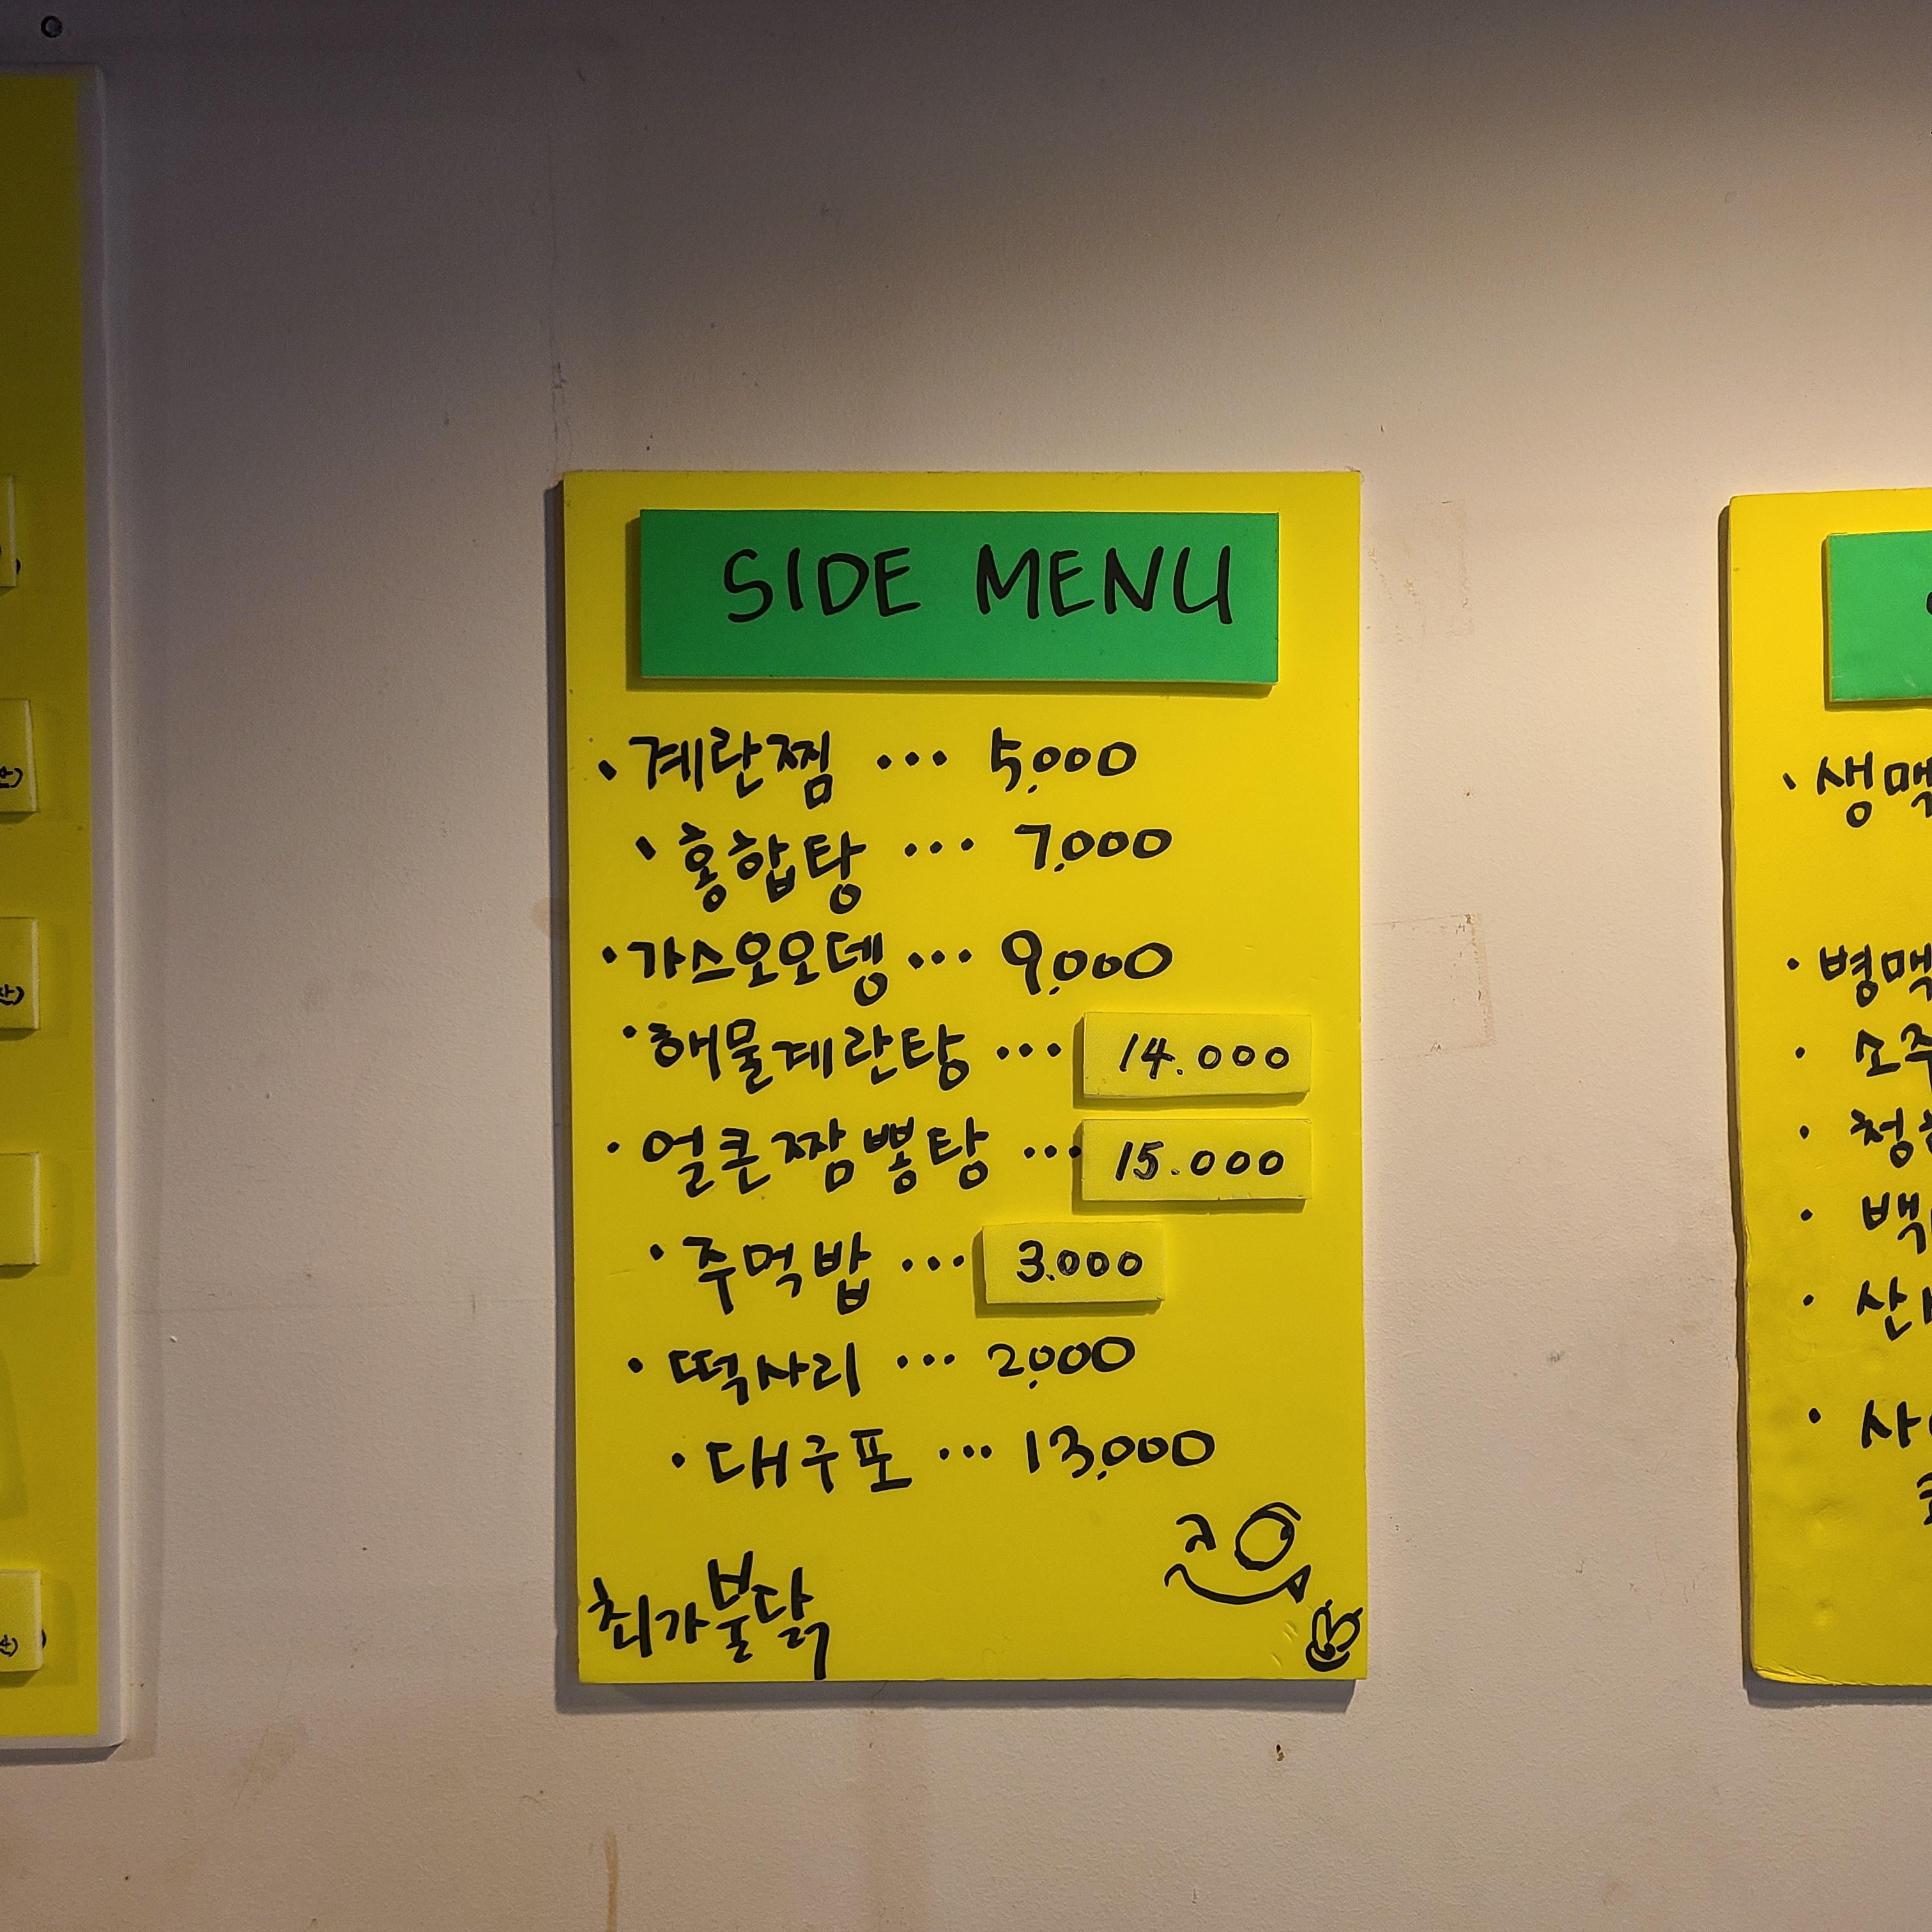 SIDE MENU
· 계란찜 ··· 5,000
· 홍합탕 ··· 7,000
· 가스오오뎅 ··· 9,000
· 해물계란탕 ··· 14.000
· 얼큰짬뽕탕 ··· 15.000
· 주먹밥 ··· 3.000
· 떡사리 ··· 2,000
· 대구포 ··· 13,000
최가불닭
· 생맥
· 병맥
· 소주